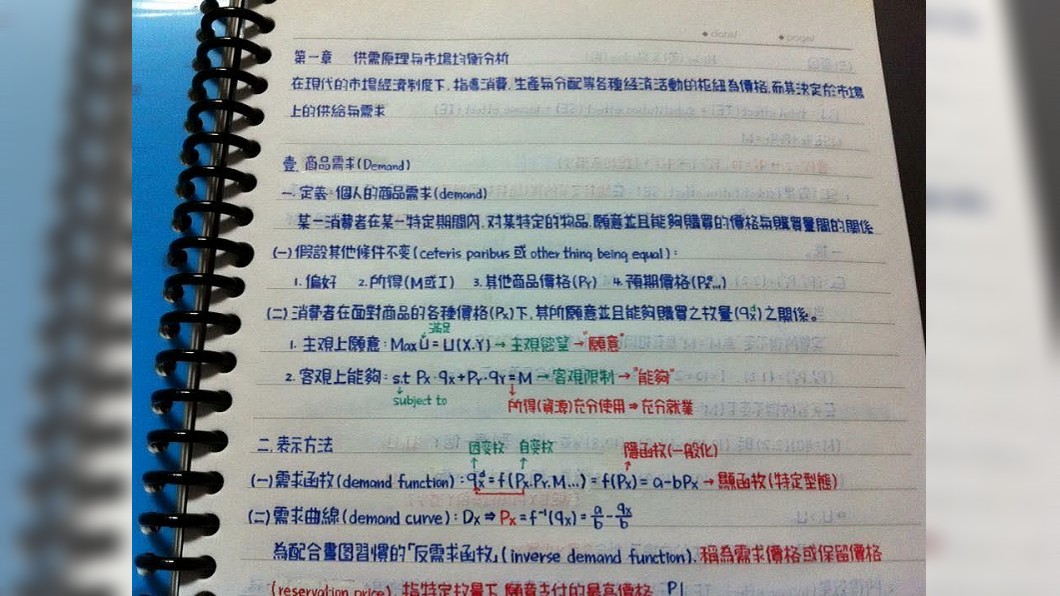 date/ page/
第一章 供需原理与市場均衡分析
在現代的市場經濟制度下, 指導消費, 生產与分配等各種経済活動的枢紐為價格, 而其決定於市場
上的供給与需求
壹. 商品需求(Demand)
一. 定義:個人的商品需求(demand)
某一消費者在某一特定期間內, 对某特定的物品, 願意並且能夠購買的價格与購買量間的関係
(一) 假設其他條件不变(ceteris paribus 或 other thing being equal):
1. 偏好 2. 所得(M或I) 3. 其他商品價格(Py) 4. 預期價格(Pxᵉ...)
(二) 消費者在面對商品的各種價格(Px)下, 其所願意並且能夠購買之数量(qxᵈ)之関係。
滿足
1. 主观上願意: Max U = U(X,Y) → 主观慾望 → "願意"
2. 客观上能夠: s.t Px·qx+Py·qy=M → 客观限制 → "能夠"
subject to 所得(資源)充分使用 ⇒ 充分就業
二. 表示方法 因变数 自变数 隱函数(一般化)
(一) 需求函数(demand function): qxᵈ = f(Px,Py,M...) = f(Px) = a-bPx → 顯函数(特定型態)
(二) 需求曲線(demand curve): Dx ⇒ Px = f⁻¹(qx) = a/b - qx/b
為配合畫図習慣的「反需求函数」(inverse demand function), 稱為需求價格或保留價格
(reservation price), 指特定数量下, 願意支付的最高價格 P|